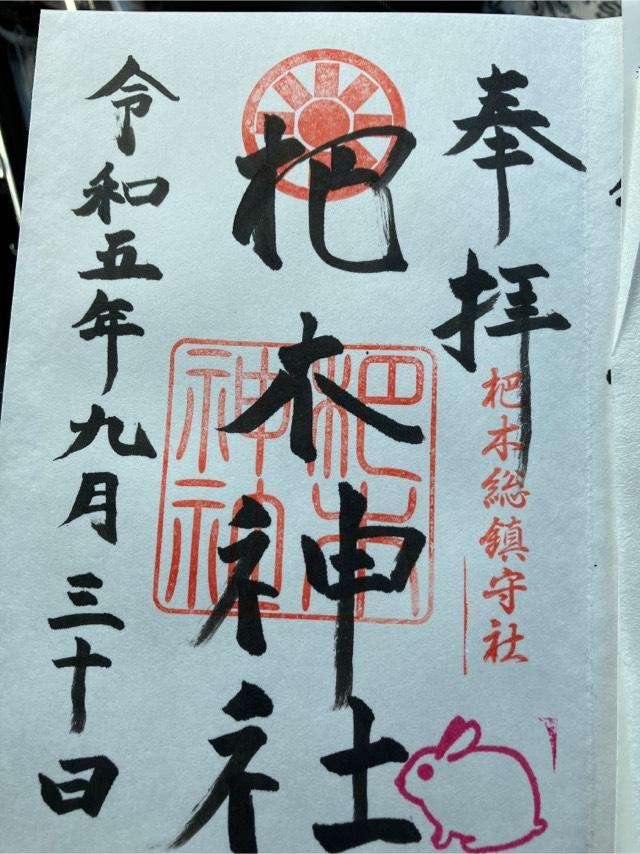 奉拝
杷木総鎮守社
杷木神社
杷木神社
令和五年九月三十日